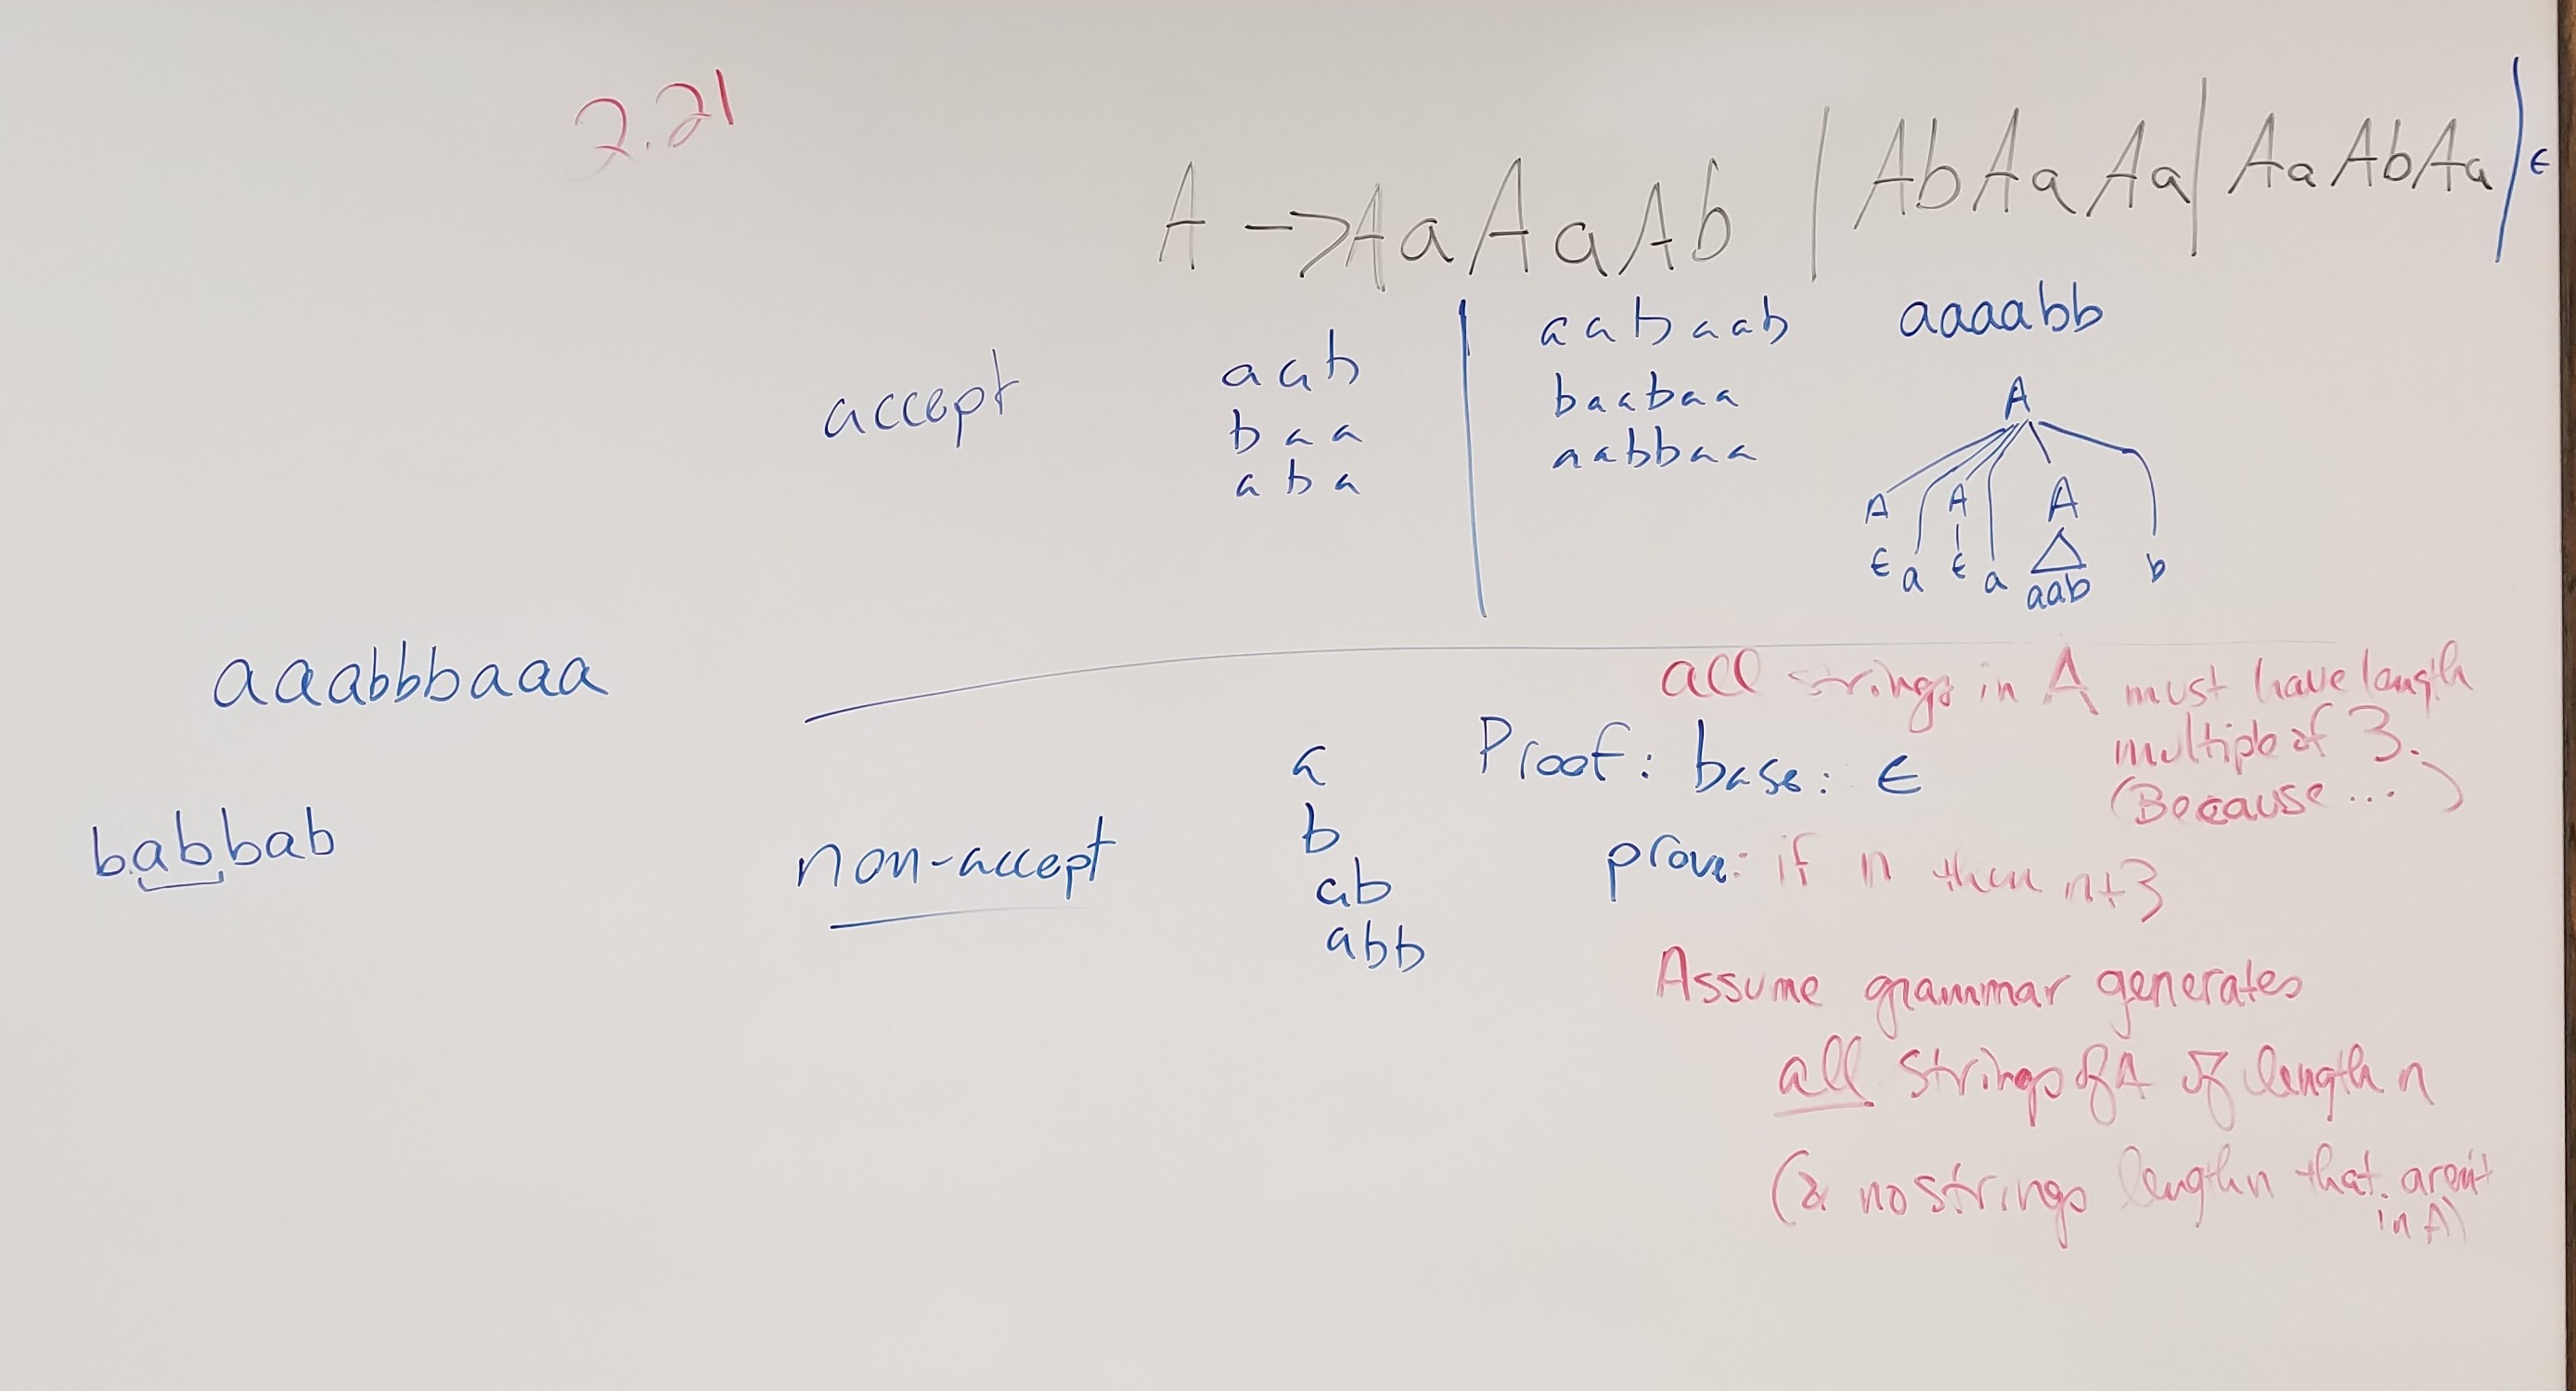 2.21
A -> AaAaAb | AbAaAa | AaAbAa | ϵ
accept
aab
baa
aba
aabaab
baabaa
aabbaa
aaaabb
A
A A A
ϵ a ϵ a aab b
aaabbbaaa
babbab
non-accept
a
b
ab
abb
all strings in A must have length
multiple of 3.
(Because ... )
Proof: base: ϵ
prove: if n then n+3
Assume grammar generates
all strings of A of length n
(& no strings length n that aren't
in A)